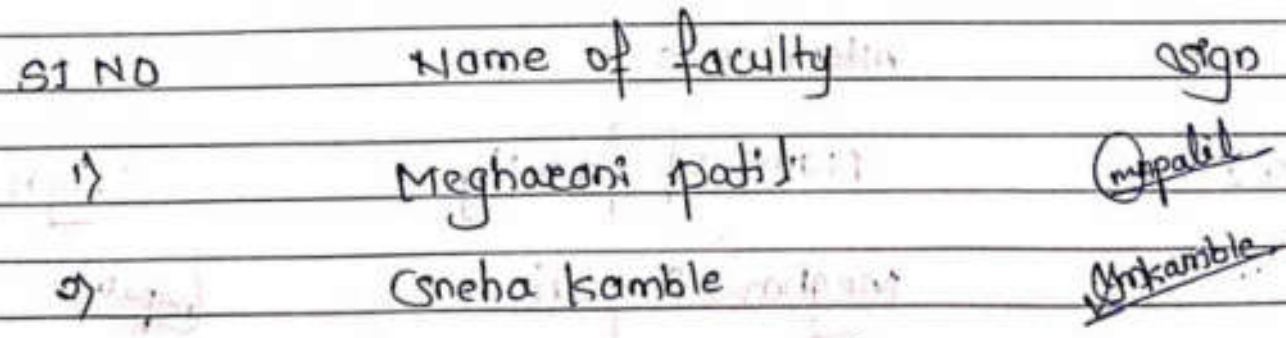 SI NO Name of faculty sign
1) Megharani patil mppatil
2) Sneha kamble